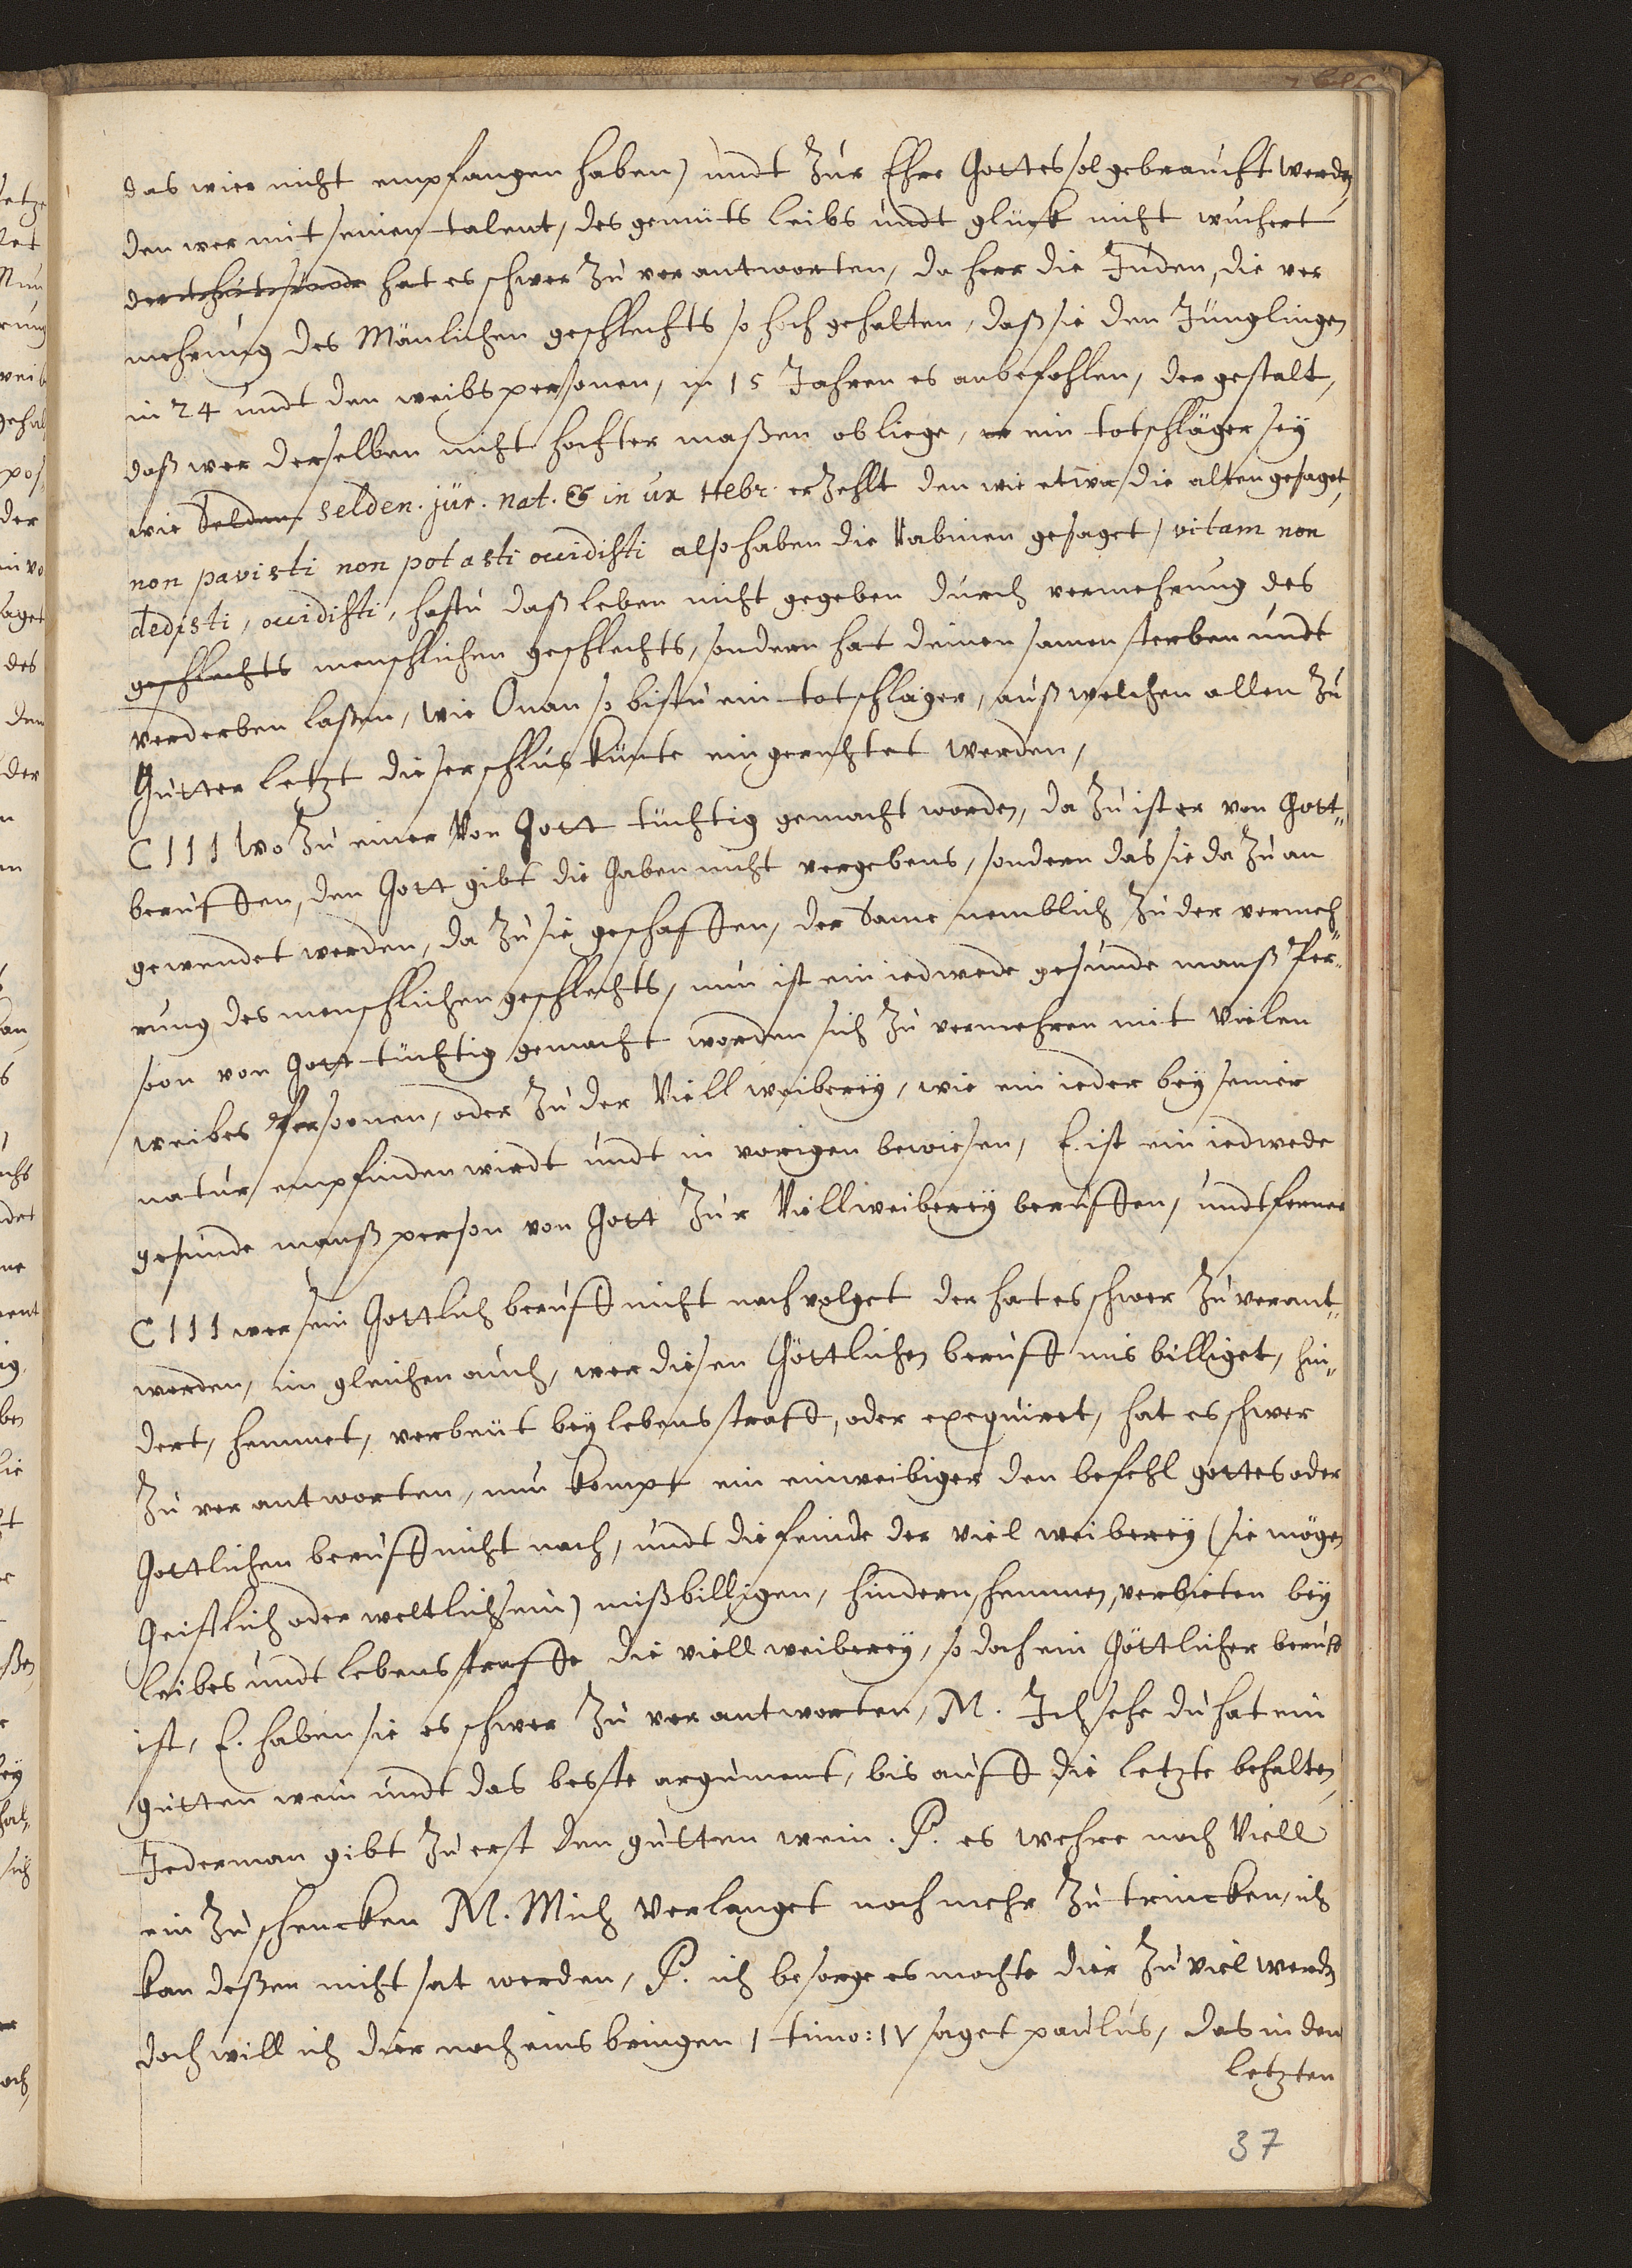 das wier nicht empfangen haben) undt Zur Ehre Gottes sol gebraucht werden
den wer mit seinen talent, des gemüts leibs undt glück nicht wuchert
hat es schwer Zu verantworten, da herr die Juden, die ver
mehrung des Mänlichen geschlechts so hoch gehalten, daß sie den Jünglingen
in 24 undt den weibspersonen, in 15 Jahren es anbefohlen, der gestalt,
daß wer derselben nicht hochster maßen obliege, er ein totschläger seÿ
wie Selden selden. jür. nat. & in ux Hebr. erZehlt den wie etwa die alten gesaget,
non pavisti non potasti occidisti also haben die Rabinen gesaget, vitam non
dedisti, occidisti, hastu daß leben nicht gegeben durch vermehrung des
geschlechts menschlichen geschlechts, sondern hat deinen samen sterben undt
verderben laßen, wie Onan so bistu ein totschläger, auß welchen allen Zu
Gutter letzt dieser schlus künte eingerichtet werden,
C 111 wo Zu einer Von Gott tüchtig gemacht worden, da Zu ist er von Gott„
beruffen, den Gott gibt die Gaben nicht vergebens, sondern das sie da Zu an
gewendet werden, da Zu sie geschaffen, der Same nemblich Zu der vermeh„
rung des menschlichen geschlechts, nun ist ein iedwede gesunde manß Per„
soon von Gott tüchtig gemacht worden sich Zu vermehren mit Vielen
weibes Persoonen, oder Zu der Viell weiberëy, wie ein ieder beÿ seiner
natur empfinden wirdt undt in vorigen bewiesen, E. ist ein iedwede
gesunde manß person von Gott Zur Viellweiberëy beruffen, undt ferner
C 111 wer sein Gottlich beruff nicht nachvolget der hat es schwer Zu verant„
worden, im gleichen auch, wer diesen Göttlichen beruff mis billiget, hin„
dert, hemmet, verbeut beÿ lebens straff, oder exequiret, hat es schwer
Zu verantworten, nun kompt ein einweibiger den befehl gottes oder
Gottlichen beruff nicht nach, undt die feinde der viel weiberëy (sie mögen
Geistlich oder weltlich sein) mißbilligen, hindern, hemmen, verbieten beÿ
leibes undt lebens straffe die viell weiberëy, so doch ein Göttlicher beruff
ist, E. haben sie es schwer Zu verantworten, M. Ich sehe du hat ein
gutten wein undt das beste argument, bis auff die letzte behalten,
Jederman gibt Zu erst den gutten wein. P. es wehre noch Viell
ein Zu schencken M. Mich Verlanget noch mehr Zu trincken, ich
kan deßen nicht sat werden, P. ich besorge es mochte dier Zu viel werden
doch will ich dier noch eins bringen 1 timo: IV saget paulus, das in den
letzten
37